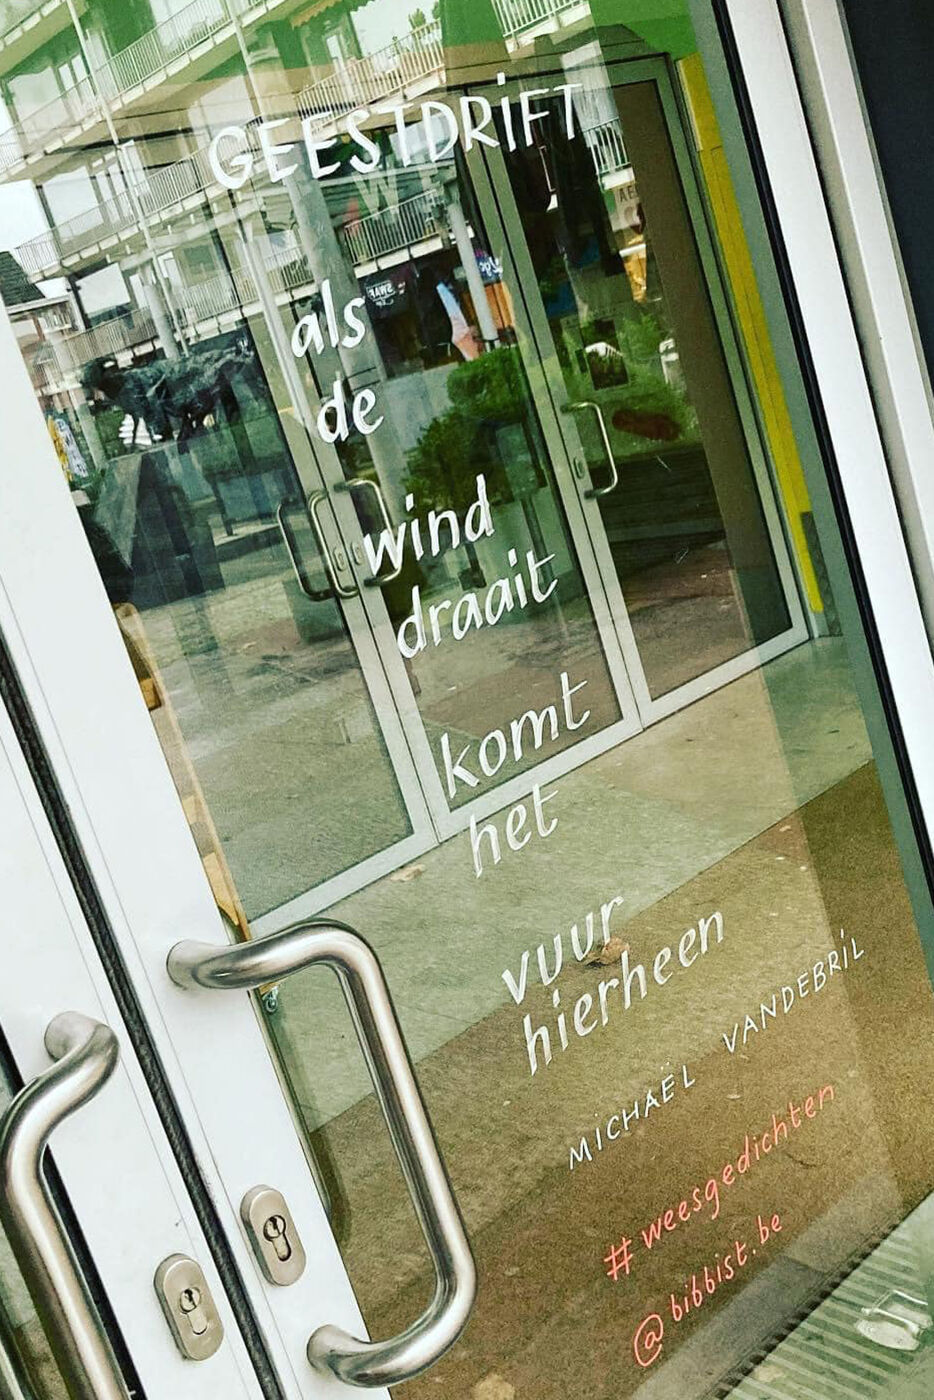 GEESTDRIFT
als
de
wind
draait
komt
het
vuur
hierheen
MICHAËL VANDEBRIL
#weesgedichten
@bibbist.be